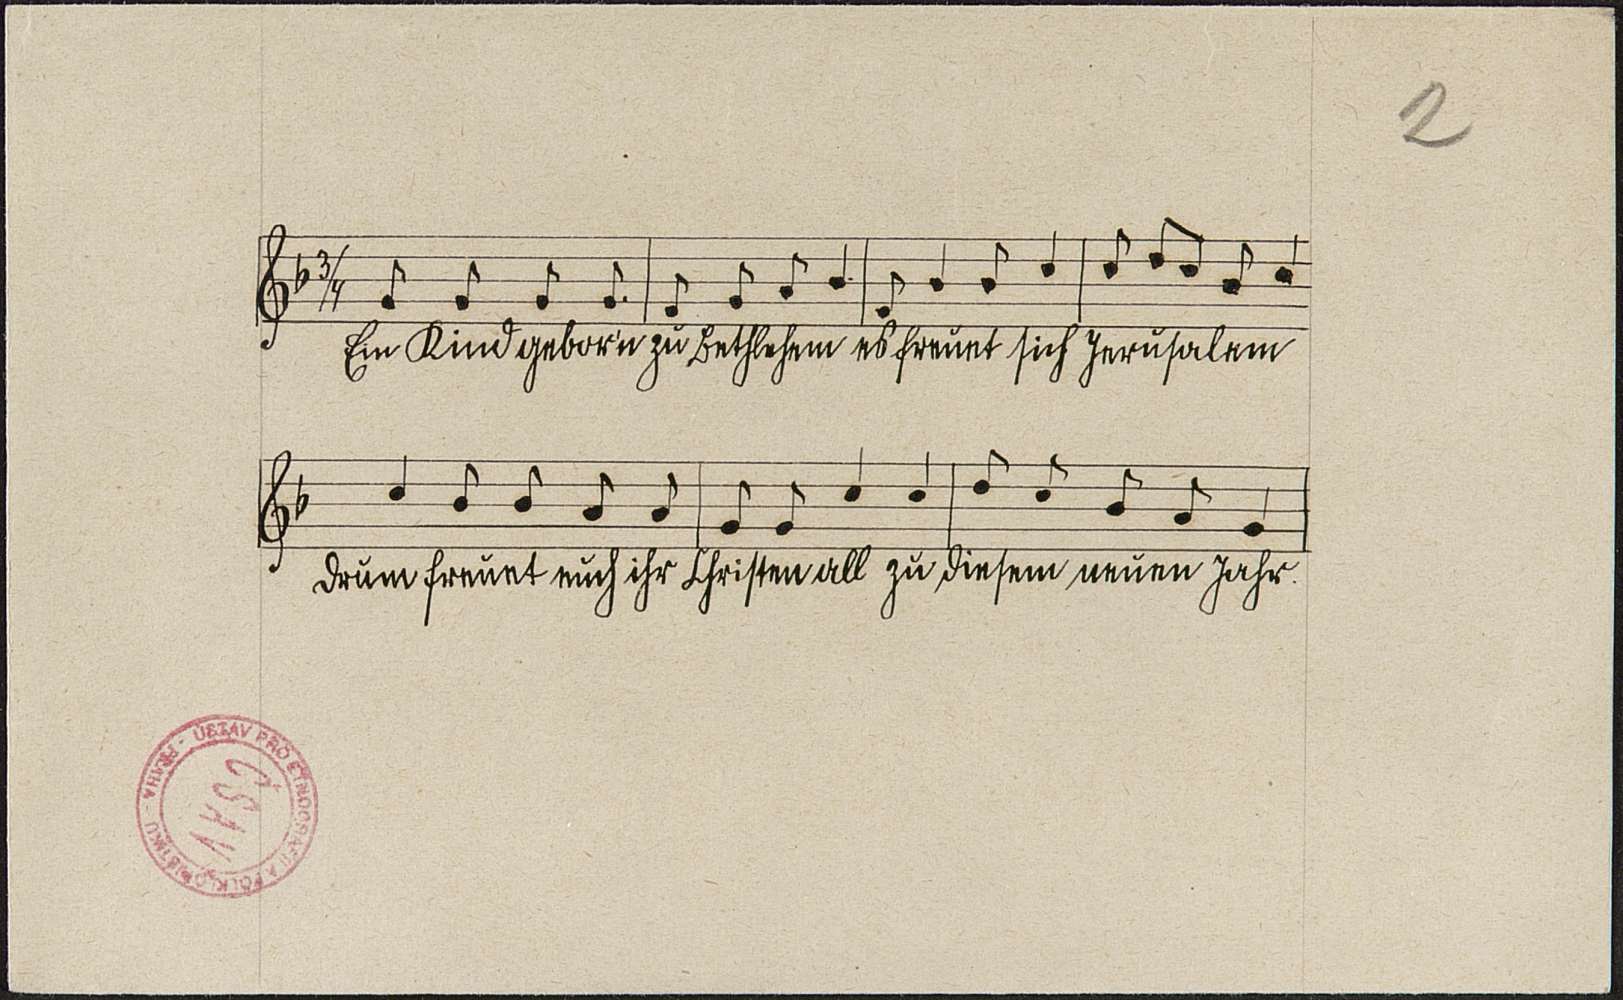 2
3/4
Ein Kind gebor'n zu Bethlehem es freuet sich Jerusalem
drum freuet euch ihr Christen all zu diesem neuen Jahr.
ÚSTAV PRO ETNOGRAFII A FOLKLORISTIKU - PRAHA -
ČSAV